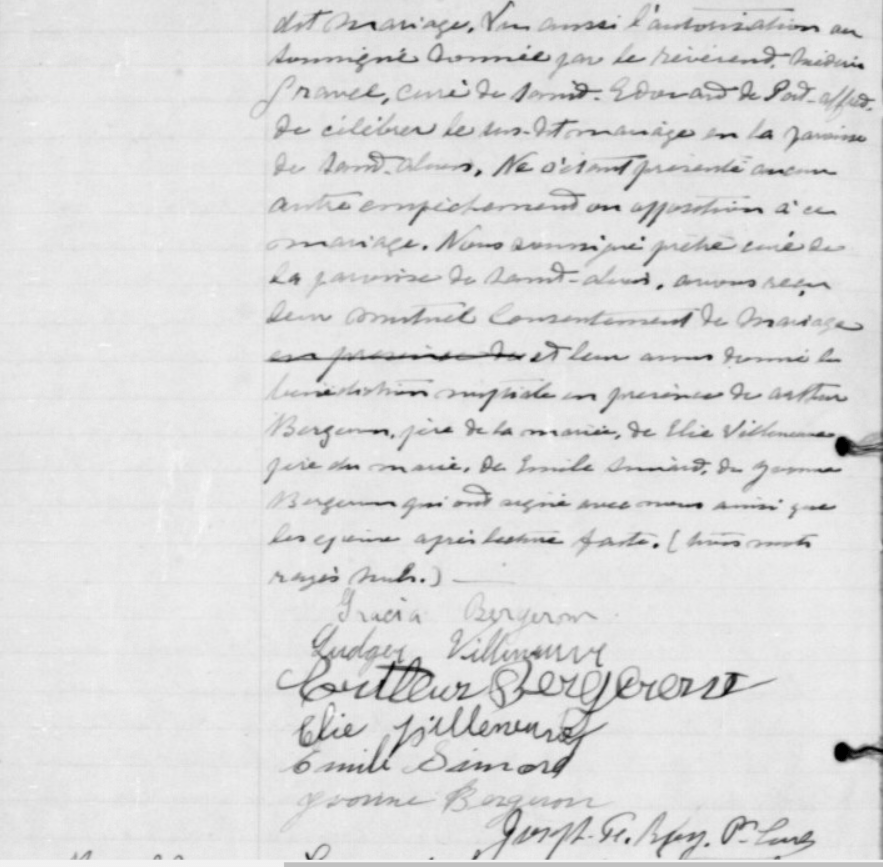 dit mariage. Vu aussi l'autorisation au
soussigné donnée par le révérend
Gravel, curé de Saint-Edouard de Port-Alfred,
de célébrer le sus-dit mariage en la paroisse
de Saint-Alexis. Ne s'étant présenté aucun
autre empêchement ou opposition à ce
mariage. Nous soussigné prêtre curé de
la paroisse de Saint-Alexis, avons reçu
leur mutuel Consentement de Mariage
en présence de et leur avons donné la
bénédiction nuptiale en présence de Arthur
Bergeron, père de la mariée, de Elie Villeneuve
père du marié, de Emile Simard, de Yvonne
Bergeron qui ont signé avec nous ainsi que
les époux après lecture faite. (trois mots
rayés nuls.)
Gracia Bergeron
Ludger Villeneuve
Arthur Bergeron
Elie Villeneuve
Emile Simard
Yvonne Bergeron
Joseph- Ptre Curé